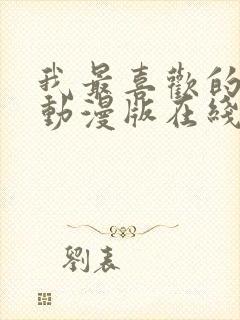 我最喜歡的
動漫版在綫
劉表